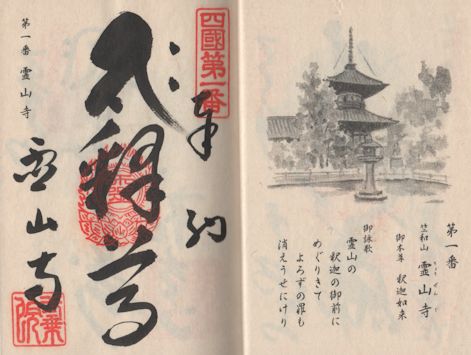 第一番
竺和山 霊山寺
りょうぜんじ
御本尊 釈迦如来
御詠歌
霊山の
釈迦の御前に
めぐりきて
よろずの罪も
消えうせにけり
四國第一番
奉納
大釋尊
霊山寺
第一番 霊山寺
一乗院